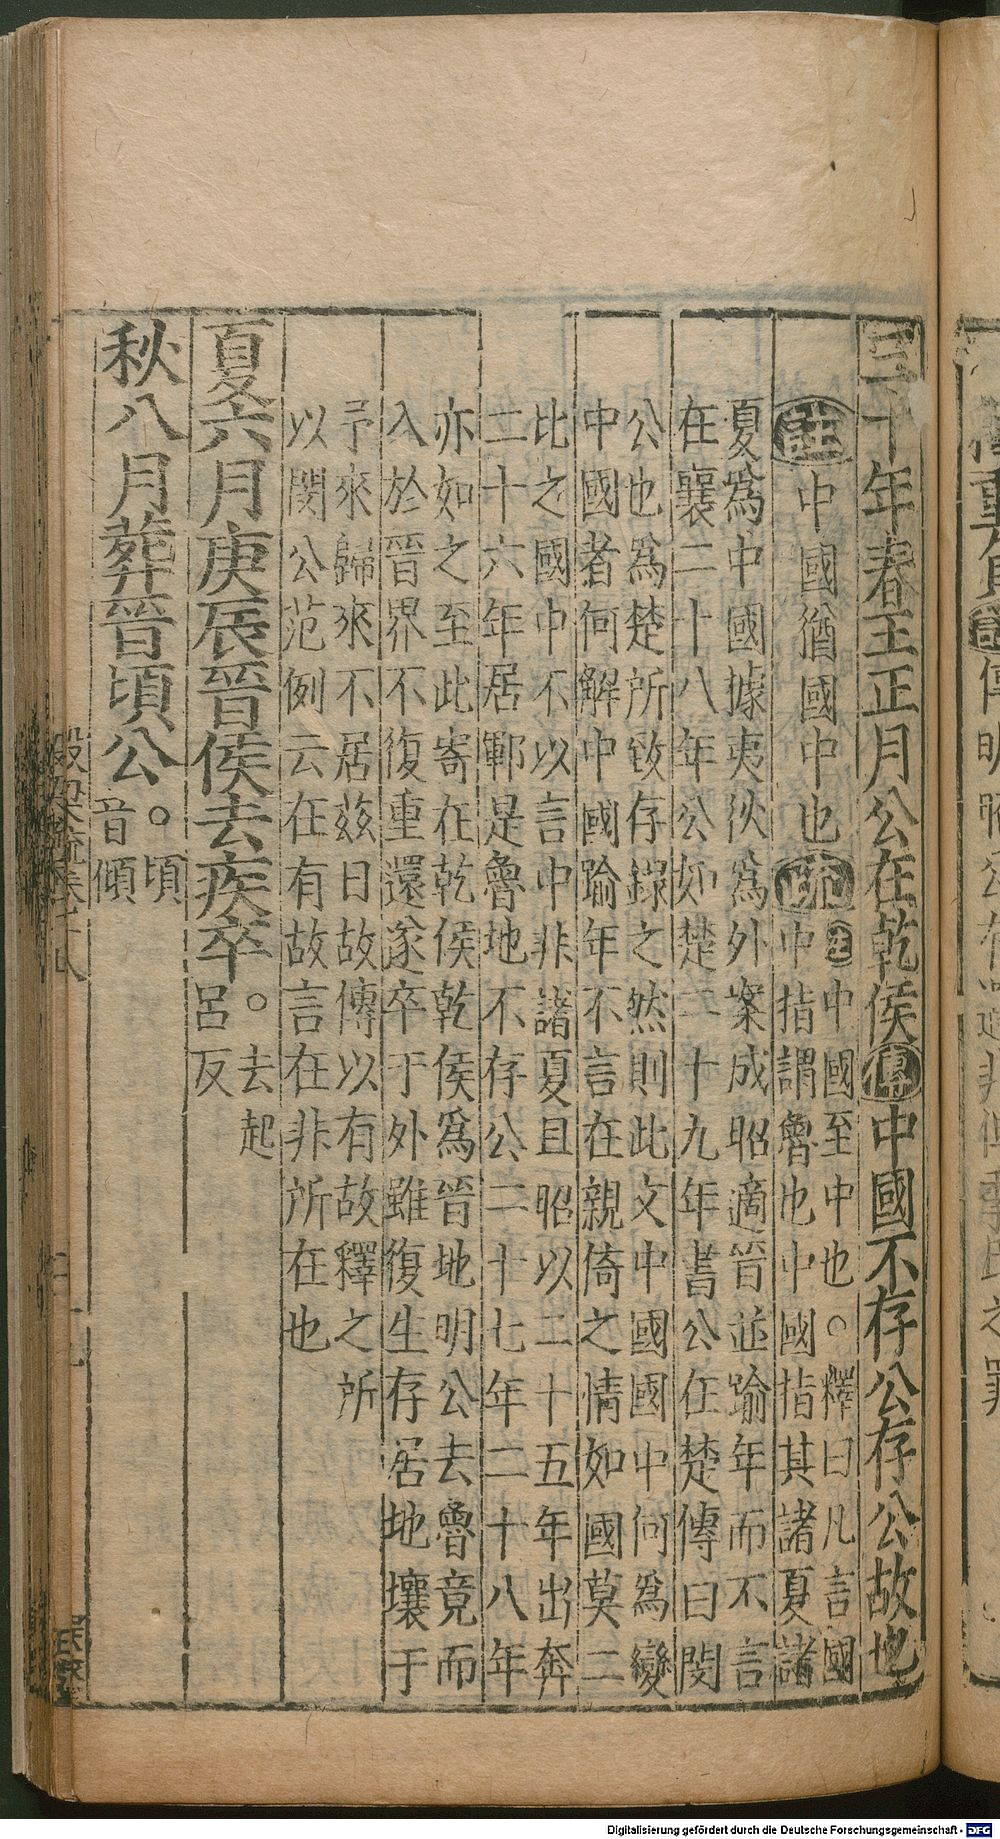 三十年春王正月公在乾侯傳中國不存公存公故也
註中國猶國中也疏註中國至中也○釋曰凡言國
中指謂魯也中國指其諸夏諸
夏為中國據夷狄為外案成昭適晉並踰年而不言
在襄二十八年公如楚二十九年書公在楚傳曰閔
公也爲楚所致存錄之然則此文中國國中何爲變
中國者何解中國踰年不言在親倚之情如國莫二
比之國中不以言中非諸夏且昭以二十五年出奔
二十六年居鄆是魯地不存公二十七年二十八年
亦如之至此寄在乾侯乾侯爲晉地明公去魯竟而
入於晉界不復重還遂卒于外雖復生存居地壤于
予來歸來不居茲日故傳以有故釋之所
以閔公范例云在有故言在非所在也
夏六月庚辰晉侯去疾卒○去起
呂反
秋八月葬晉頃公○頃
音傾
穀梁疏卷十八
Digitalisierung gefördert durch die Deutsche Forschungsgemeinschaft - DFG